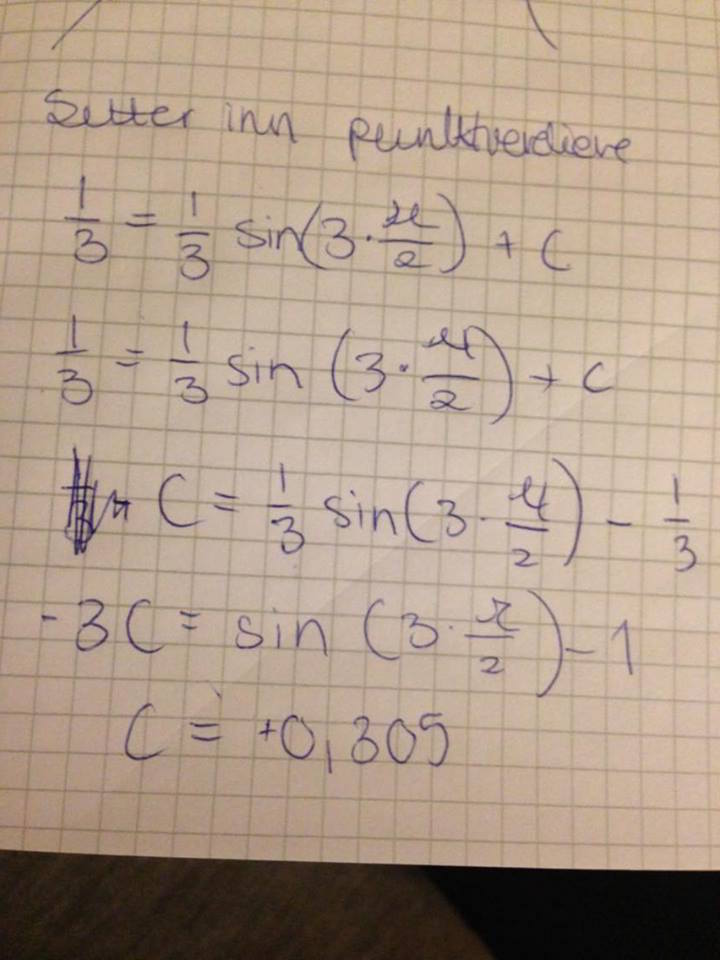 Setter inn punktverdiene
1/3 = 1/3 sin(3·π/2) + C
1/3 = 1/3 sin (3·π/2) + C
- C = 1/3 sin(3·π/2) - 1/3
-3C = sin (3·π/2) - 1
C = +0,305